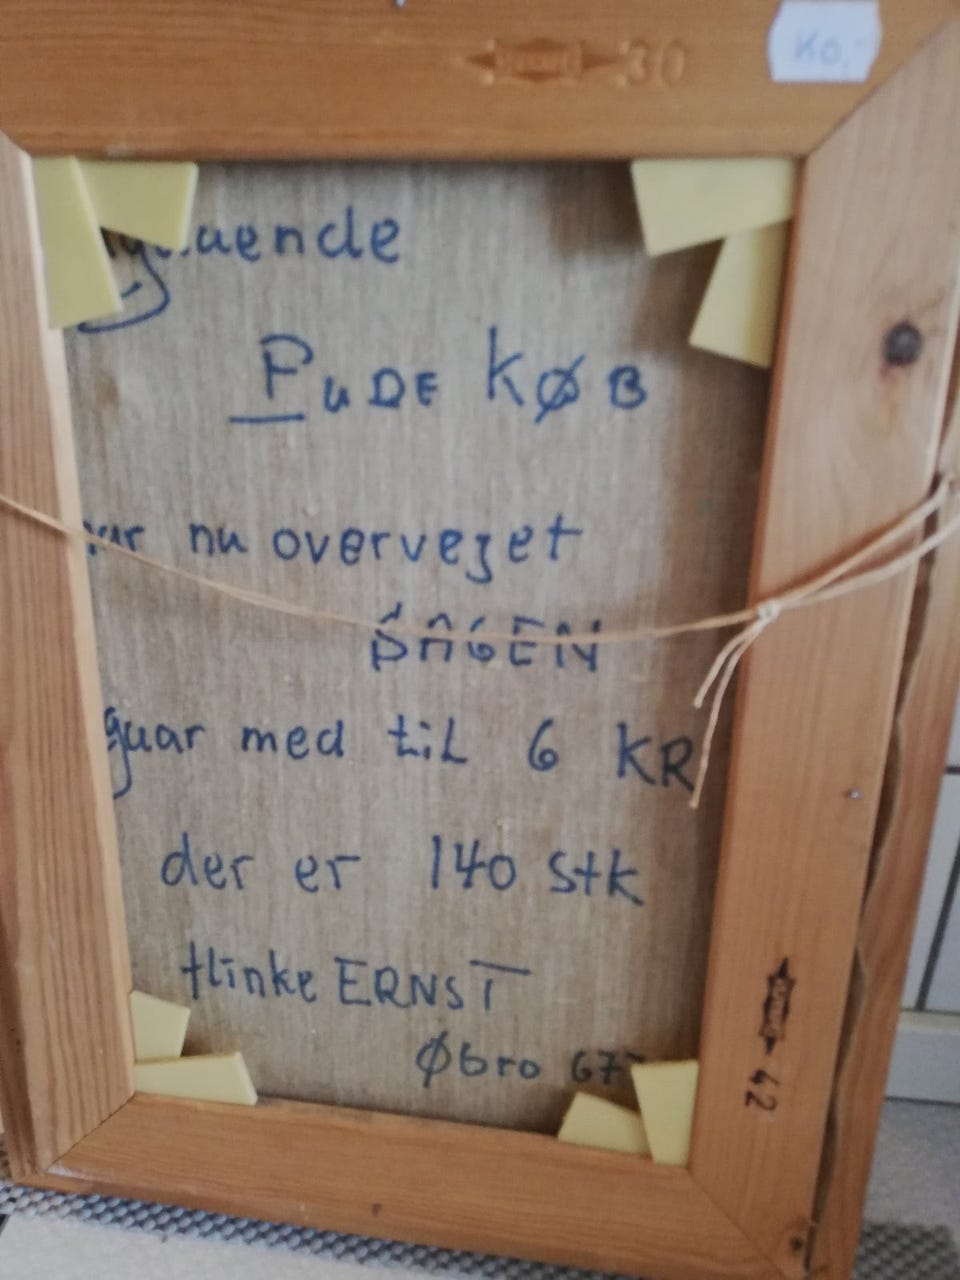 30
PUDE KØB
nu overvejet
SAGEN
med til 6 KR
der er 140 stk
flinke ERNST
Øbro 67
42